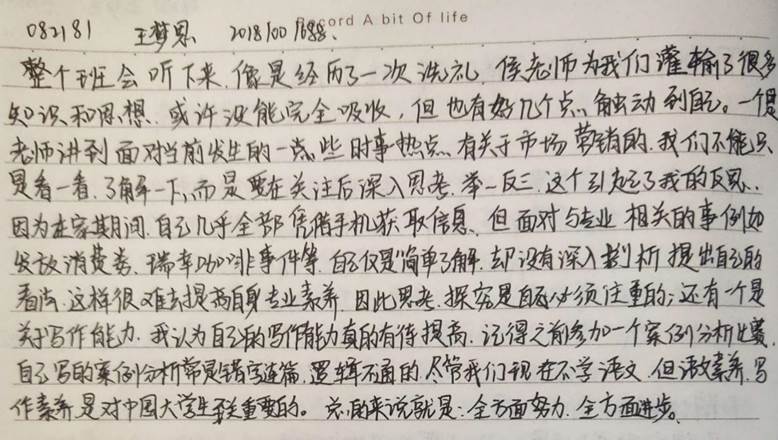 Record A bit Of life
082181 王梦思 20181001688.
整个班会听下来,像是经历了一次洗礼,侯老师为我们灌输了很多
知识和思想,或许没能完全吸收,但也有好几个点,触动到自己。一个是
老师讲到面对当前发生的一些时事热点,有关于市场营销的,我们不能只
是看一看,了解一下,而是要在关注后深入思考,举一反三,这个引起了我的反思.
因为在家期间,自己几乎全部凭借手机获取信息,但面对与专业相关的事例如
发放消费券,瑞幸咖啡事件等,自己仅是简单了解,却没有深入剖析提出自己的
看法,这样很难去提高自身专业素养,因此思考,探究是自己必须注重的;还有一个是
关于写作能力,我认为自己的写作能力真的有待提高,记得之前参加一个案例分析比赛,
自己写的案例分析常是错字连篇,逻辑不通的,尽管我们现在不学语文,但语文素养,写
作素养是对中国大学生至关重要的。总的来说就是:全方面努力,全方面进步。